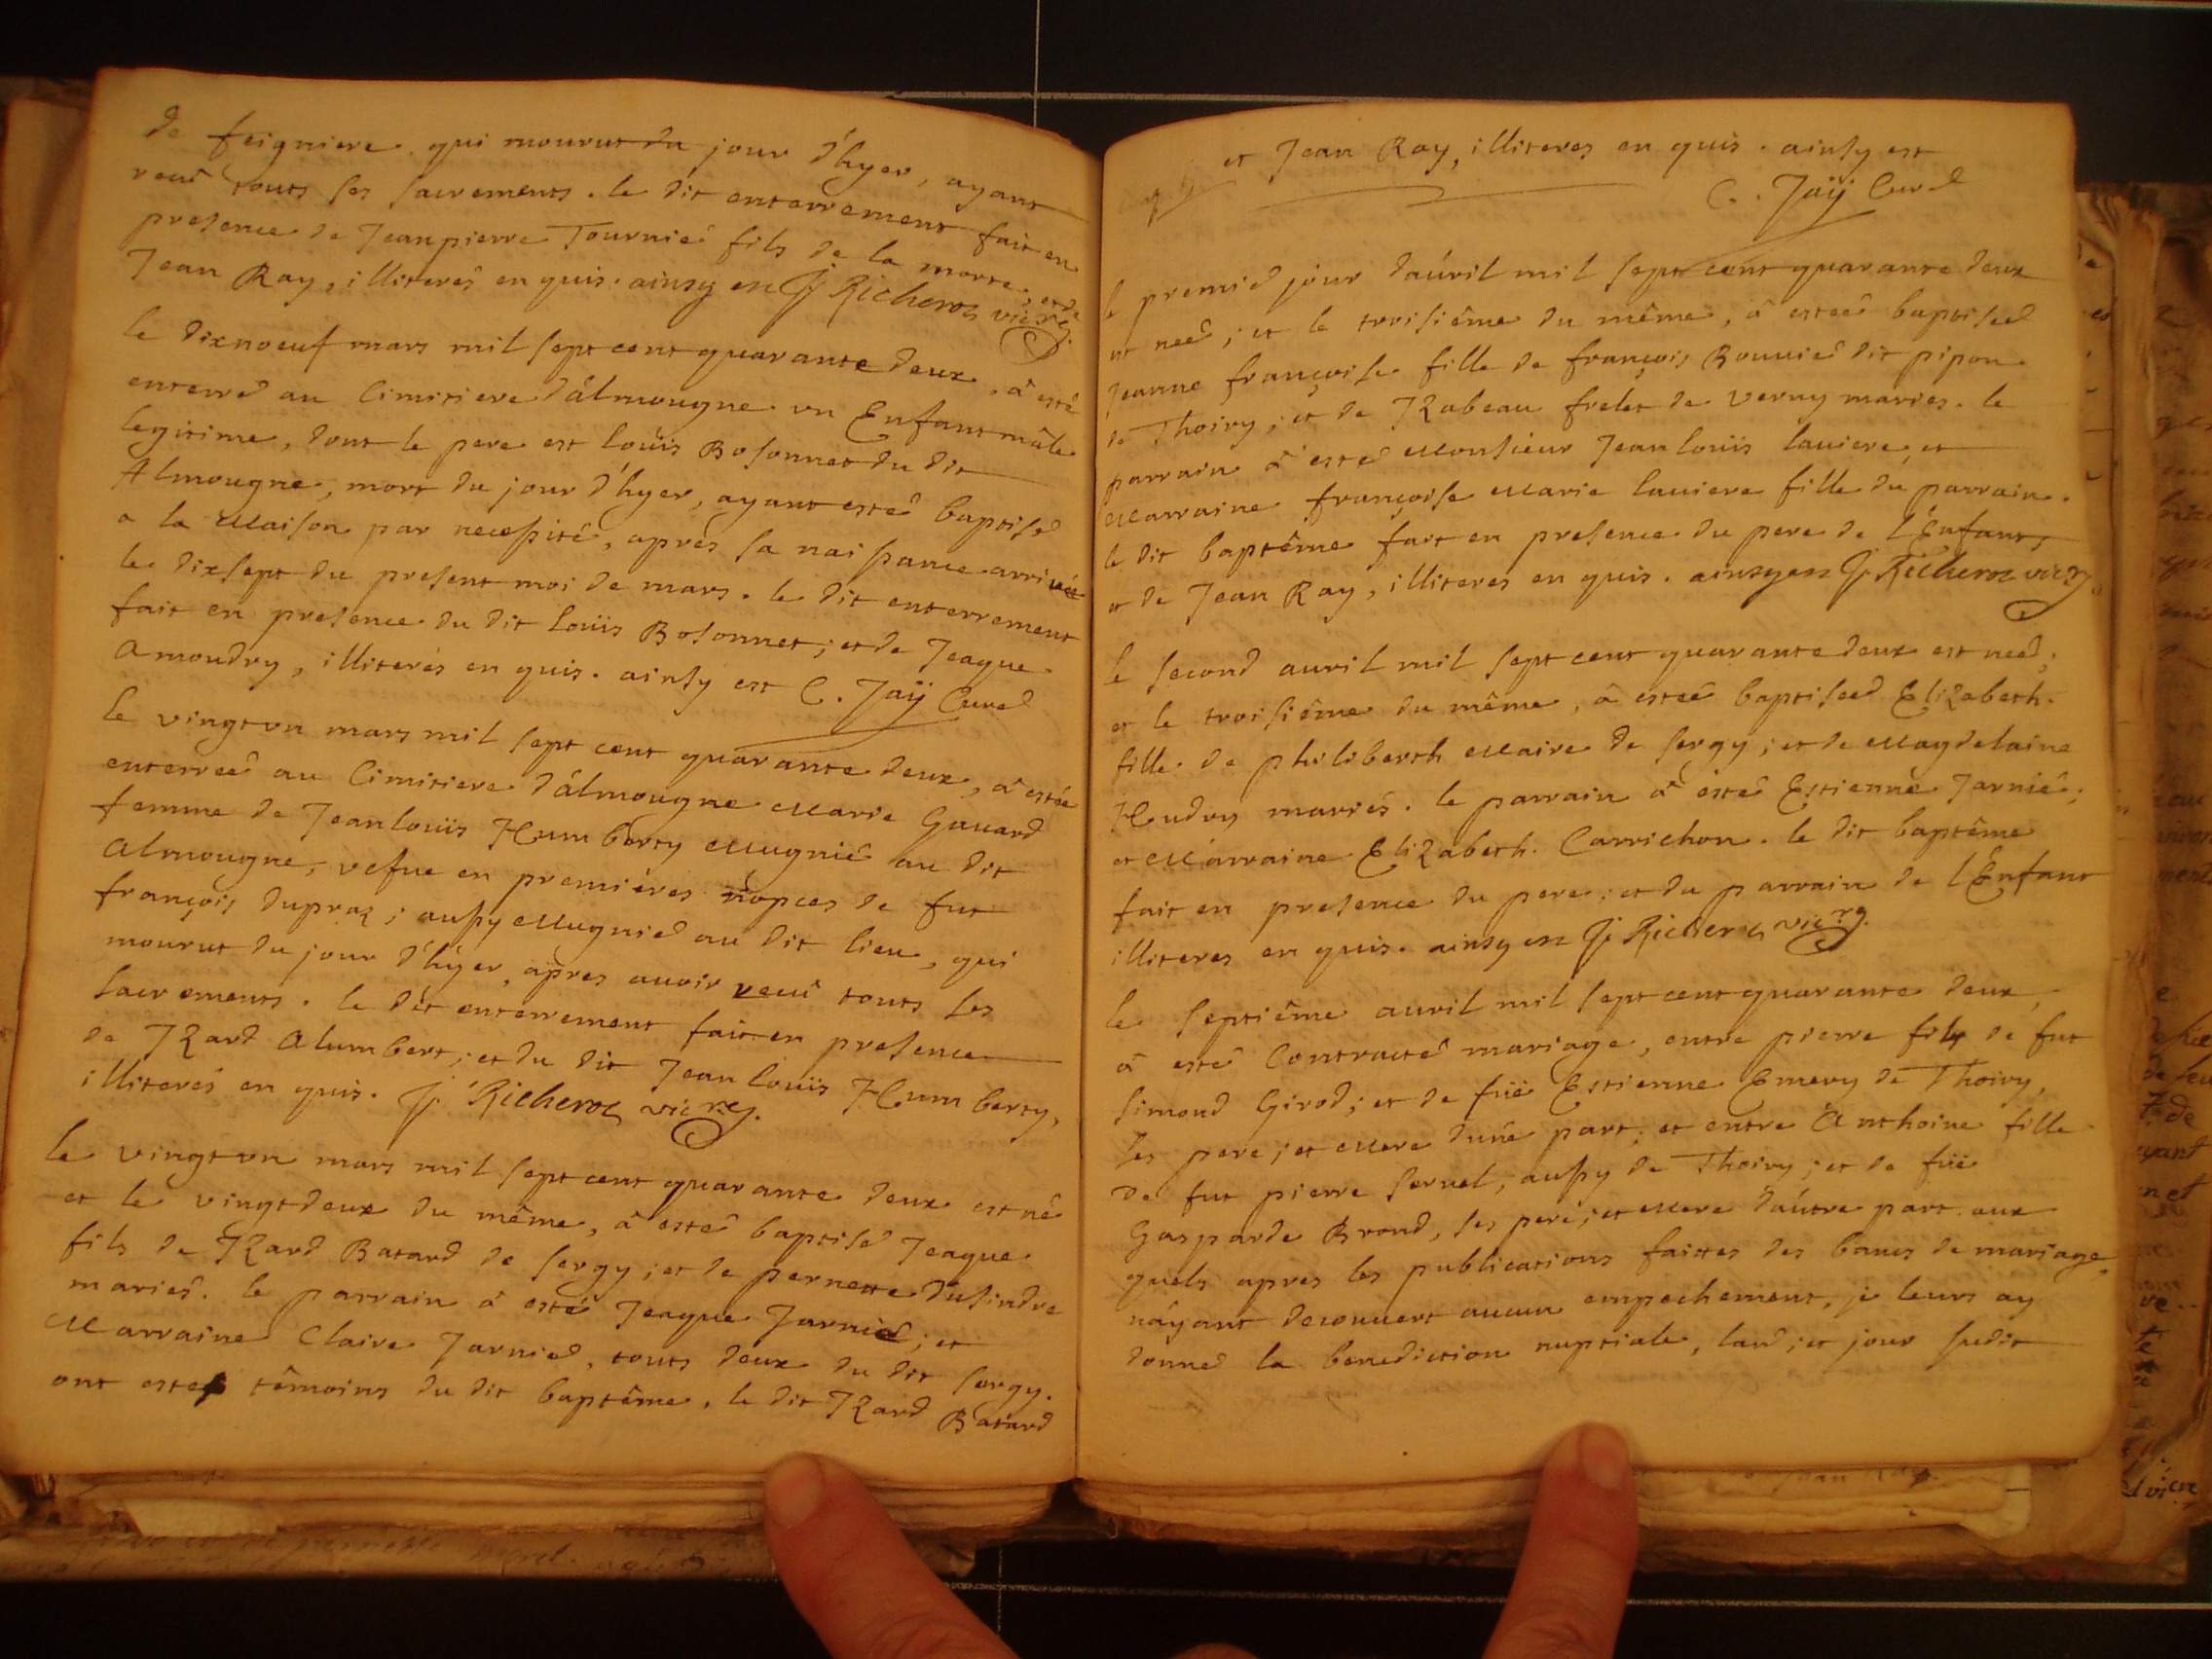 de feigniere qui mourut du jour d'hyer, ayant
receü touts ses sacrements. le dit enterrement fait en
presence de Jeanpierre Tournié fils de la morte; et de
Jean Ray, illiterés en quis. ainsy est J. Richeroz vic.re
le dixnoeuf mars mil sept cent quarante deux, â esté
enterré au Cimitiere d'âlmougne un Enfant mâle
legitime, dont le pere est loüis Bosonnet du dit
Almougne, mort du jour d'hyer, ayant esté baptisé
a la maison par necessité, aprés sa naissance arrivée
le dixsept du present moi de mars. le dit enterrement
fait en presence du dit loüis Bosonnet; et de Jeaque
Amoudry, illiterés en quis. ainsy est C. Jaÿ Curé
le vingt un mars mil sept cent quarante deux, â estée
enterreé au Cimitiere d'âlmougne Marie Gavard
femme de Jeanloüis Humberty Mugnié au dit
Almougne, vefue en premiéres nopces de fut
françois dupraz; aussy Mugnié au dit lieu, qui
mourut du jour d'hyer, apres avoir receü touts les
sacrements. le dit enterrement fait en presence
de JZard Alumbert; et du dit Jean loüis Humberty,
illiterés en quis. J. Richeroz vic.re
le vingt un mars mil sept cent quarante deux est né
et le vingtdeux du même, â esté baptisé Jeaque
fils de JZard Batard de sergy; et de pernette dusindre
mariés. le parrain â esté Jeaque Jarnié; et
Marraine Claire Jarnié, touts deux du dit sergy.
ont estés têmoins du dit baptême, le dit JZard Batard
et Jean Ray, illiteres en quis. ainsy est
C. Jaÿ Curé
le premié jour d'aúril mil sept cent quarante deux
est neé; et le troisiême du même, â esteé baptiseé
Jeanne françoise fille de françois Bouvié dit pipon
de Thoiry; et de JZabeau frelet de verny mariés. le
parrain â esté Monsieur Jean loüis laviere, et
Marraine françoise Marie laviere fille du parrain.
le dit baptême fait en presence du pere de l'Enfant,
et de Jean Ray, illiteres en quis. ainsy est J. Richeroz vic.re
le second auril mil sept cent quarante deux est neé;
et le troisiême du même, â esteé baptiseé Elizabeth
fille de philiberth Maire de sergy; et de Magdelaine
Hudry mariés. le parrain â esté Estienne Jarnié;
et Marraine Elizabeth Carrichon. le dit baptême
fait en presence du pere; et du parrain de l'Enfant
illiteres en quis. ainsy est J. Richeroz vic.re
le septiême auril mil sept cent quarante deux,
â esté Contracté mariage, entre pierre fils de fut
simond Girod; et de füe Estienne Emery de Thoiry,
ses pere; et Mere d'une part; et entre Anthoine fille
de fut pierre sernel, aussy de Thoiry; et de füe
Gasparde Brond, ses pere; et Mere d'aútre part. aux
quels apres les publications faittes des bancs de mariage,
n'áyant decouvert aucun empechement, je leurs ay
donné la benediction nuptiale, l'an; et jour sudit